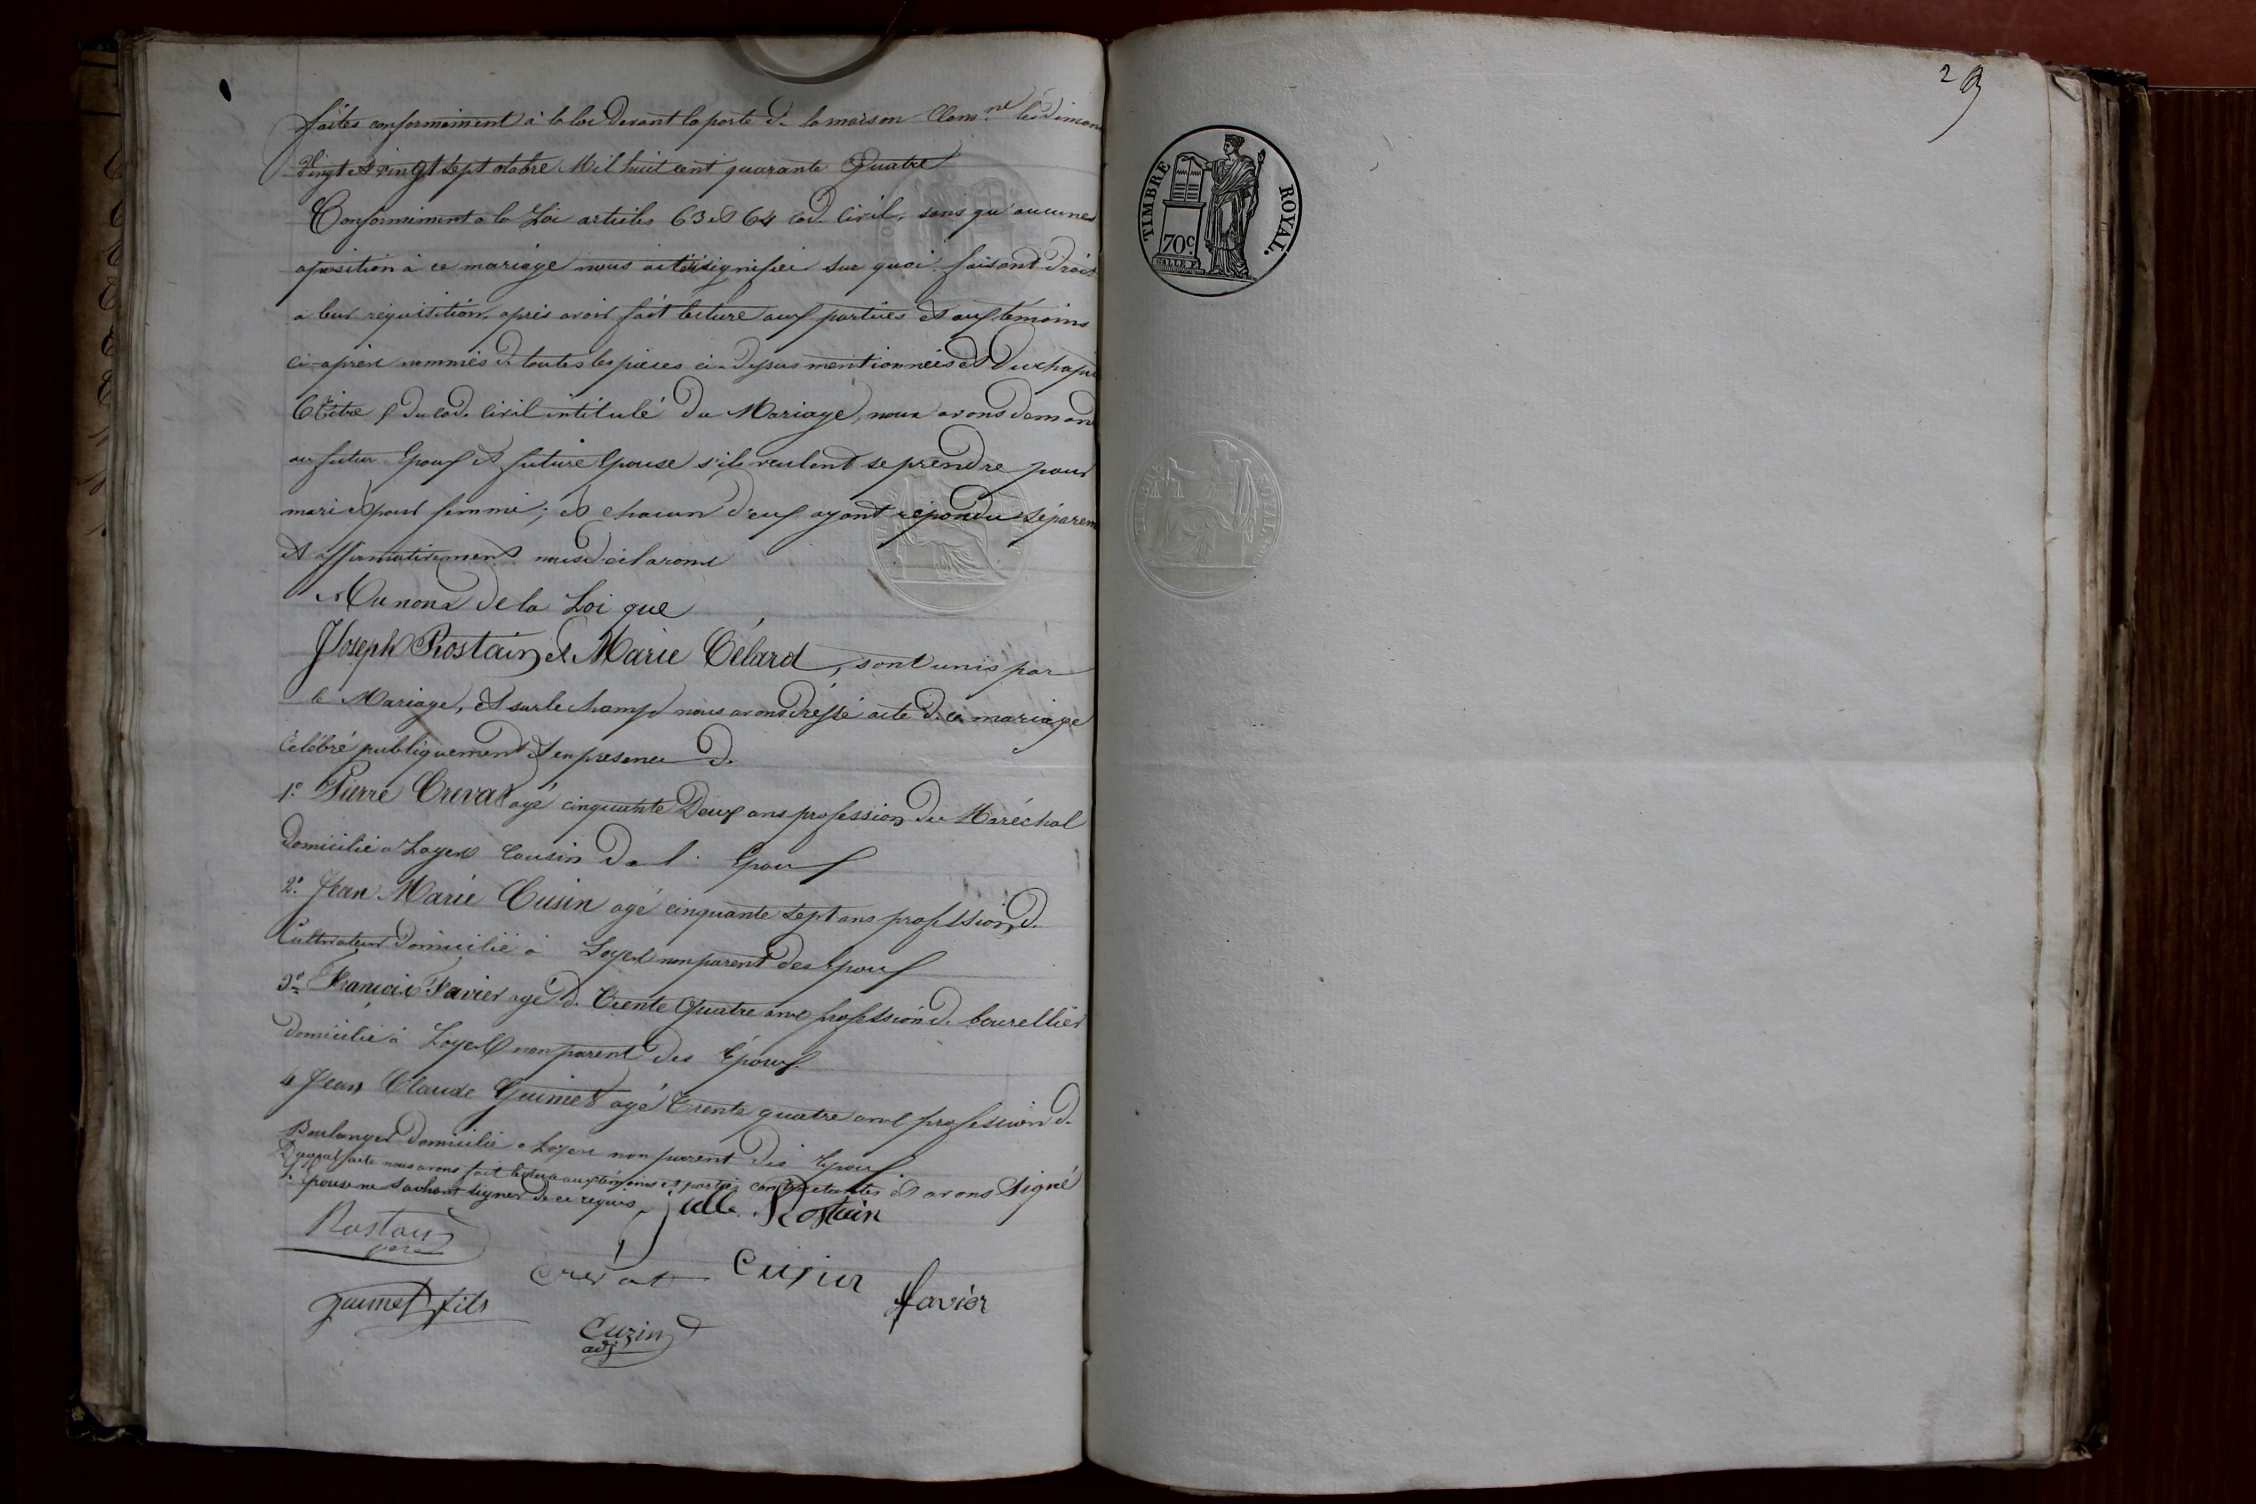 faites conformément à la loi devant la porte de la maison Com.ne les diman
vingt et vingt sept octobre Mil huit cent quarante Quatre
Conformément a la Loi articles 63 et 64 code Civil, sans qu'aucunes
oposition à ce mariage nous ait été signifiée sur quoi faisant droit
a leur réquisition, après avoir fait lecture aux parties et aux témoins
ci-après nommés de toutes les pièces ci-dessus mentionnées et du chapi
6 titre 5 du code Civil intitulé Du Mariage, nous avons demand
au futur Epoux et future Epouse s'ils veulent se prendre pour
mari et pour femme; et chacun d'eux ayant répondu séparem
et affirmativement nous déclarons
Au nom de la Loi que
Joseph Rostain et Marie Télard, sont unis par
le Mariage, et sur le champ nous avons dressé acte de ce mariage
célébré publiquement et en presence de
1.o Pierre Crevat agé cinquante Deux ans profession de Maréchal
domicilié a Loyes Cousin de l'Epoux
2.o Jean Marie Cusin agé cinquante sept ans profession de
Cultivateur domicilié à Loyes non parent des Epoux
3.o François Favier agé de Trente Quatre ans profession de bourellier
domicilié à Loyes non parent des Epoux
4 Jean Claude Guimet agé Trente quatre ans profession de
Boulanger domicilié a Loyes non parent des Epoux.
Duquel acte nous avons fait lecture aux témoins et parties contractantes et avons signé
l'épouse ne sachant signer de ce requis.
Rostain
Rostain
père
Crevat
Cusin
favier
guimet fils
Cuzin
adj
29
TIMBRE ROYAL.
70c